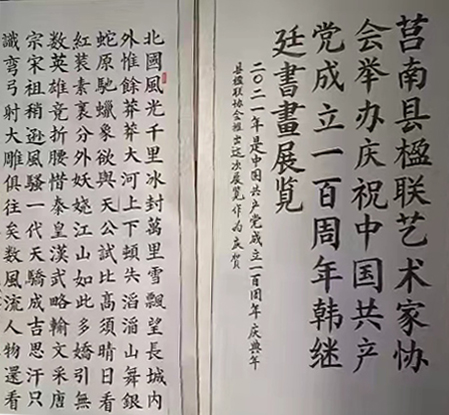 莒南县楹联艺术家协
会举办庆祝中国共产
党成立一百周年韩继
廷書畫展览
二〇二一年是中国共产党成立一百周年庆典年
县楹联协会推出这次展览作为庆贺
北國風光千里冰封萬里雪飄望長城内
外惟餘莽莽大河上下頓失滔滔山舞銀
蛇原馳蠟象欲與天公試比高須晴日看
紅装素裹分外妖娆江山如此多嬌引無
数英雄竞折腰惜秦皇漢武略輸文采唐
宗宋祖稍遜風騷一代天驕成吉思汗只
識弯弓射大雕俱往矣数風流人物還看